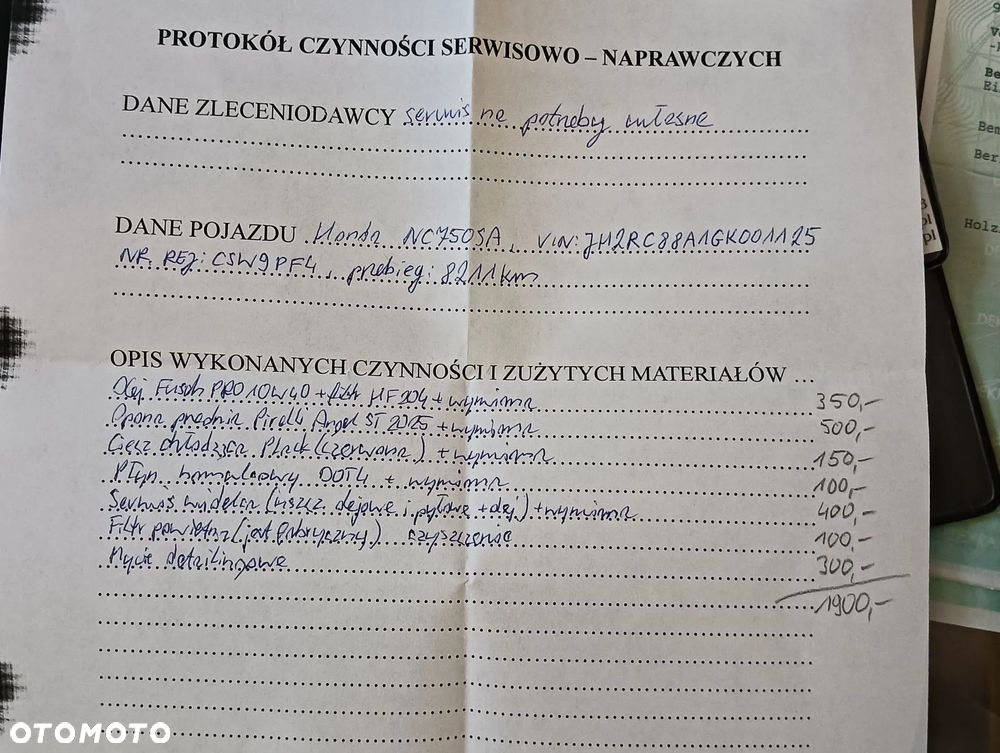 PROTOKÓŁ CZYNNOŚCI SERWISOWO – NAPRAWCZYCH
DANE ZLECENIODAWCY serwis na potrzeby własne
DANE POJAZDU Honda NC750SA, VIN: JH2RC88A1GK001125
NR REJ: CSW9PF4, przebieg: 8211km
OPIS WYKONANYCH CZYNNOŚCI I ZUŻYTYCH MATERIAŁÓW ...
Olej Fuchs PRO 10W40 + filtr HF204 + wymiana 350,-
Opona przednia Pirelli Angel ST 2025 + wymiana 500,-
Ciecz chłodząca Plack (czerwona) + wymiana 150,-
Płyn hamulcowy DOT4 + wymiana 100,-
Serwis widelca (uszcz. olejowe i pyłowe + olej) + wymiana 400,-
Filtr powietrza (jest fabryczny) czyszczenie 100,-
Mycie detailingowe 300,-
1900,-
OTOMOTO